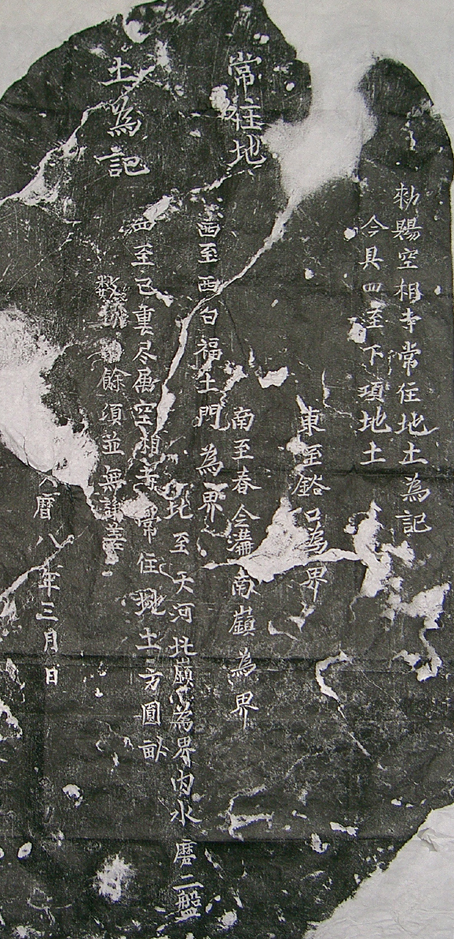 常住地
土為記
勑賜空相寺常住地土為記
今具四至下項地土
東至鉛口為界
南至春令溝南巔為界
西至西白福土門為界
北至天河北巔為界內水磨二盤
四至已裏尽属空相寺常住地土方圓畝
數 餘項並無
曆八年三月日